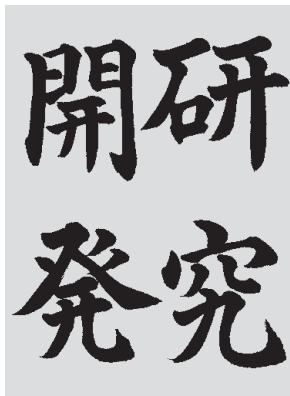 研究
開発